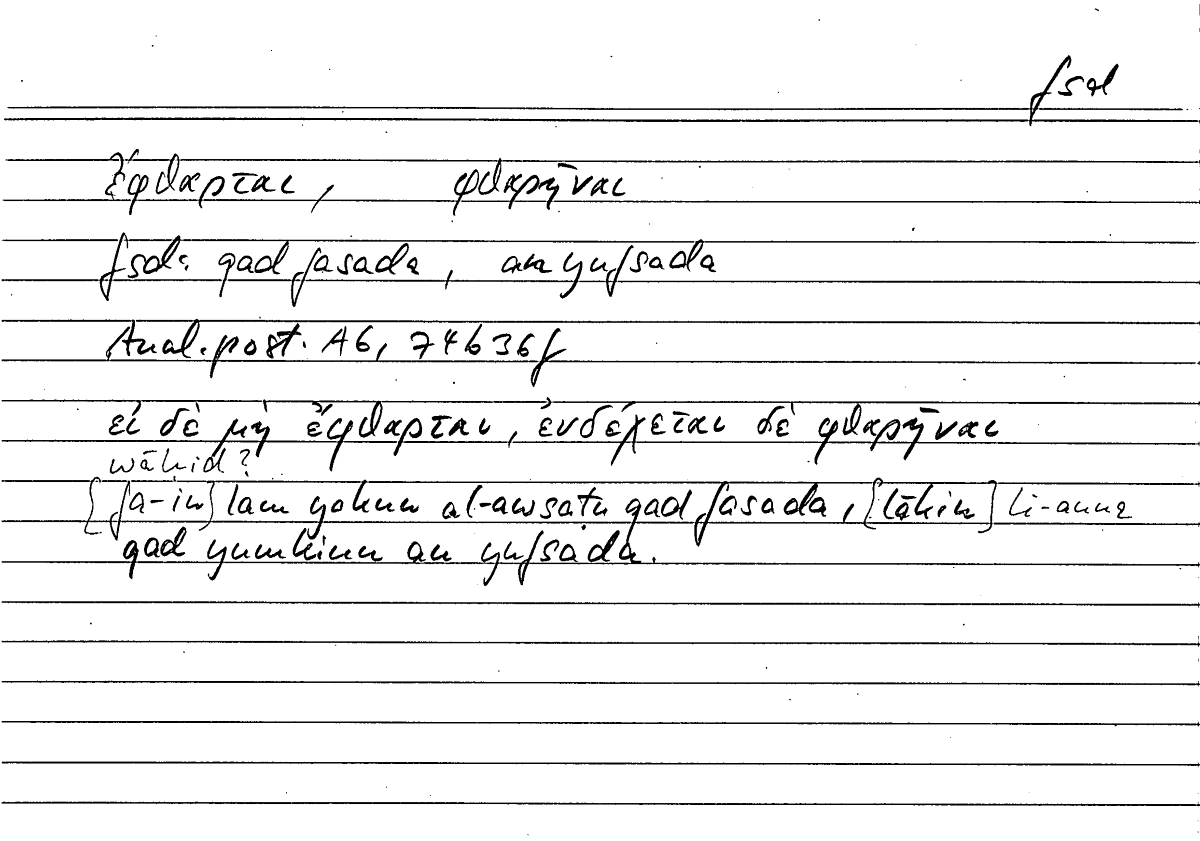 fsd
ἔφθαρται, φθαρῆναι
fsd: qad fasada, an yufsada
Anal. post. A6, 74b36f
εἰ δὲ μὴ ἔφθαρται, ἐνδέχεται δὲ φθαρῆναι
wāhid?
[fa-in] lam yakun al-awsatu qad fasada, [lākin] li-anna
qad yumkinu an yufsada.